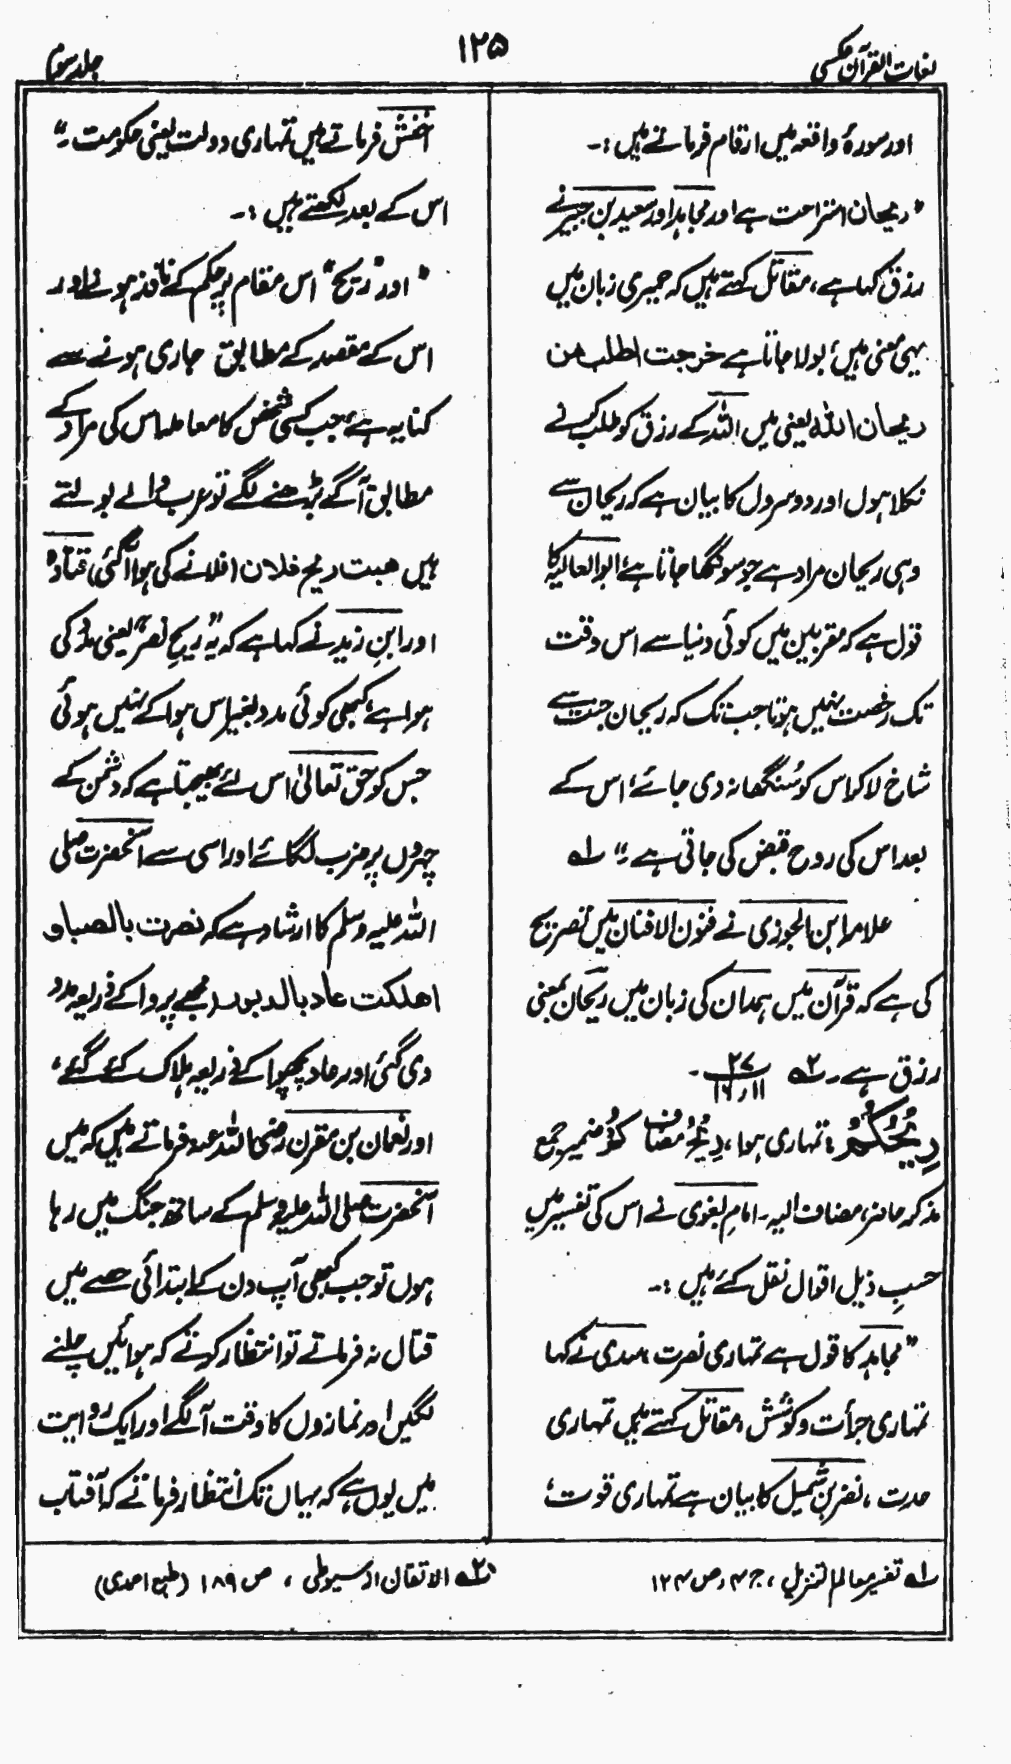 لغات القرآن عکسی
۱۲۵
جلد سوم
اور سورۂ واقعہ میں ارقام فرماتے ہیں :۔
” ریحان استراحت ہے اور مجاہد اور سعید بن جبیر نے
رزق کہا ہے، مقاتل کہتے ہیں کہ حمیری زبان میں
یہی معنی ہیں، بولا جاتا ہے خرجت اطلب من
ریحان اللہ یعنی میں اللہ کے رزق کو طلب کرنے
نکلا ہوں اور دوسروں کا بیان ہے کہ ریحان سے
وہی ریحان مراد ہے جو سونگھا جاتا ہے، ابو العالیہ کا
قول ہے کہ مقربین میں کوئی دنیا سے اس وقت
تک رخصت نہیں ہوتا جب تک کہ ریحان جنت سے
شاخ لا کر اس کو سُنگھا نہ دی جائے، اس کے
بعد اس کی روح قبض کی جاتی ہے ۔“ ۱؎
علامہ ابن الجوزی نے فنون الافنان میں تصریح
کی ہے کہ قرآن میں ہمدان کی زبان میں ریحان بمعنی
رزق ہے۔ ۲؎ ۲۷ ۱۱ر۱۶ ۔
رِیْحُکُمْ : تمہاری ہوا، رِیْحُ مضاف کُمْ ضمیر جمع
مذکر حاضر، مضاف الیہ۔ امام بغوی نے اس کی تفسیر میں
حسبِ ذیل اقوال نقل کئے ہیں :۔
” مجاہد کا قول ہے تمہاری نصرت، سدی نے کہا
تمہاری جرأت و کوشش، مقاتل کہتے ہیں تمہاری
حدت، نضر بن شمیل کا بیان ہے تمہاری قوت،
اخفش فرماتے ہیں تمہاری دولت یعنی حکومت۔“
اس کے بعد لکھتے ہیں :۔
” اور ”ریح“ اس مقام پر حکم کے نافذ ہونے اور
اس کے مقصد کے مطابق جاری ہونے سے
کنایہ ہے، جب کسی شخص کا معاملہ اس کی مراد کے
مطابق آگے بڑھنے لگے تو عرب والے بولتے
ہیں ھبت ریح فلان (فلانے کی ہوا آ گئی) قتادہ
اور ابنِ زید نے کہا ہے کہ یہ ”ریحِ نصر“ یعنی مدد کی
ہوا ہے، کبھی کوئی مدد بغیر اس ہوا کے نہیں ہوئی
جس کو حق تعالیٰ اس لئے بھیجتا ہے کہ دشمن کے
چہروں پر ضرب لگائے اور اسی سے آنحضرت صلی
اللہ علیہ وسلم کا ارشاد ہے کہ نصرت بالصبا و
اھلکت عاد بالدبور (مجھے پروا کے ذریعہ مدد
دی گئی اور عاد پچھوا کے ذریعہ ہلاک کئے گئے،
اور نعمان بن مقرن رضی اللہ عنہ فرماتے ہیں کہ میں
آنحضرت صلی اللہ علیہ وسلم کے ساتھ جنگ میں رہا
ہوں تو جب کبھی آپ دن کے ابتدائی حصے میں
قتال نہ فرماتے تو انتظار کرتے کہ ہوائیں چلنے
لگیں اور نمازوں کا وقت آ لگے اور ایک روایت
میں یوں ہے کہ یہاں تک انتظار فرماتے کہ آفتاب
۱؎ تفسیر معالم التنزیل، ج ۴ ر ص ۱۲۴
۲؎ الاتقان از سیوطی، ص ۱۸۹ (طبع احمدی)